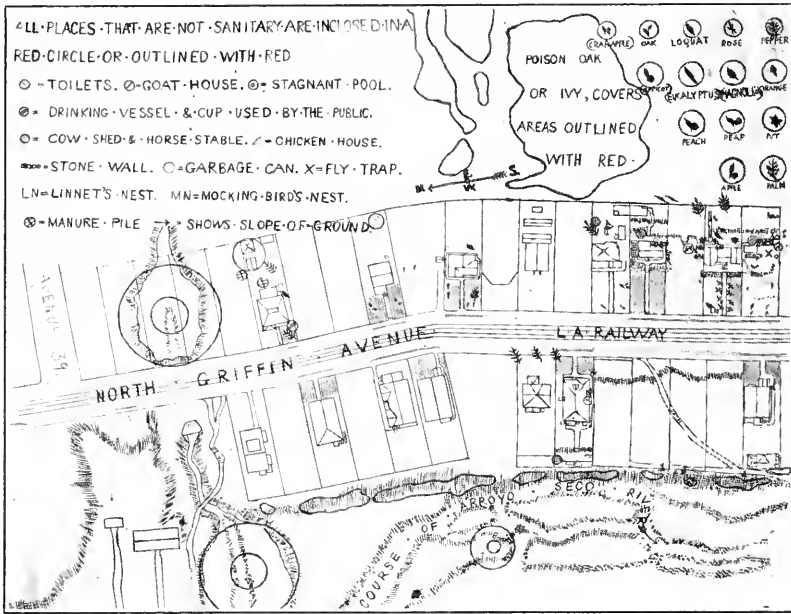 ALL·PLACES·THAT·ARE·NOT·SANITARY·ARE·INCLOSED·IN·A
RED·CIRCLE·OR·OUTLINED·WITH·RED
=TOILETS. =GOAT·HOUSE. =STAGNANT·POOL.
= DRINKING·VESSEL·&·CUP·USED·BY·THE·PUBLIC.
= COW·SHED·&·HORSE·STABLE. = CHICKEN·HOUSE.
=STONE·WALL. =GARBAGE·CAN. X=FLY·TRAP.
LN=LINNET'S·NEST. MN=MOCKING·BIRD'S·NEST.
=MANURE·PILE → = SHOWS·SLOPE·OF·GROUND.
POISON OAK
OR IVY, COVERS
AREAS OUTLINED
WITH RED.
CRABAPPLE OAK LOQUAT ROSE PEPPER
APRICOT EUKALYPTUS MAGNOLIA ORANGE
PEACH PEAR IVY
APPLE PALM
N E S W
AVENUE 39
NORTH GRIFFIN AVENUE L.A. RAILWAY
COURSE OF ARROYO SECO RIVER